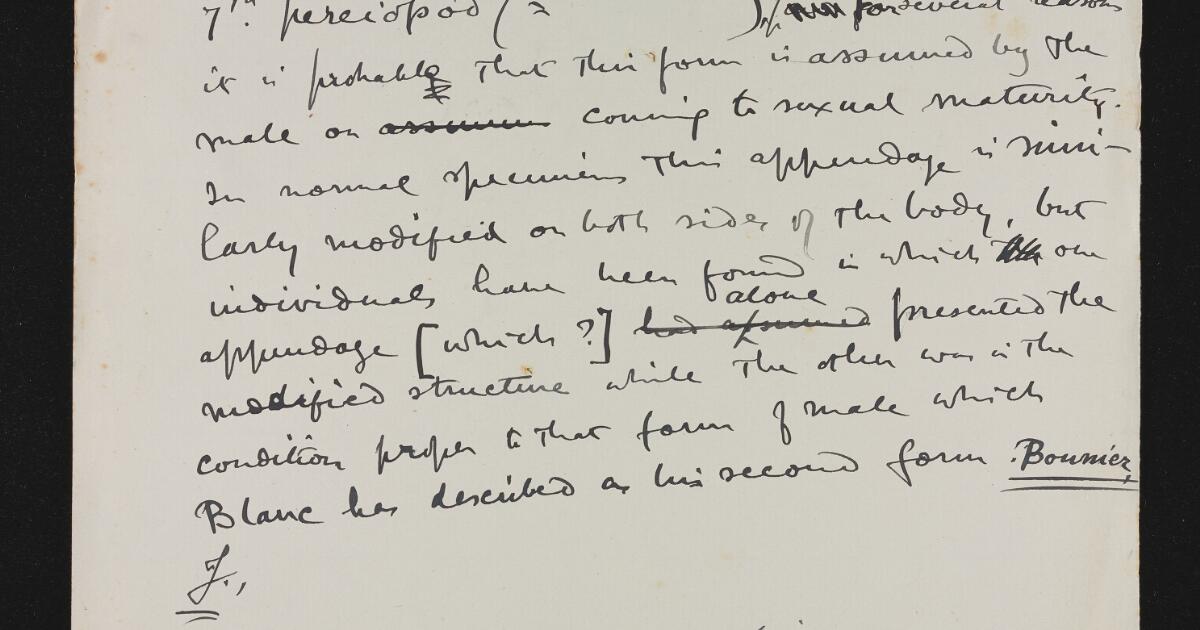 7th. pereiopod (= ), for several reasons
it is probable that this form is assumed by the
male on assumin coming to sexual maturity.
In normal specimens this appendage is simi-
larly modified on both sides of the body, but
individuals have been found in which one
alone
appendage [which ?] had assumed presented the
modified structure while the other was in the
condition proper to that form of male which
Blanc has described as his second form . Bonnier,
J.,